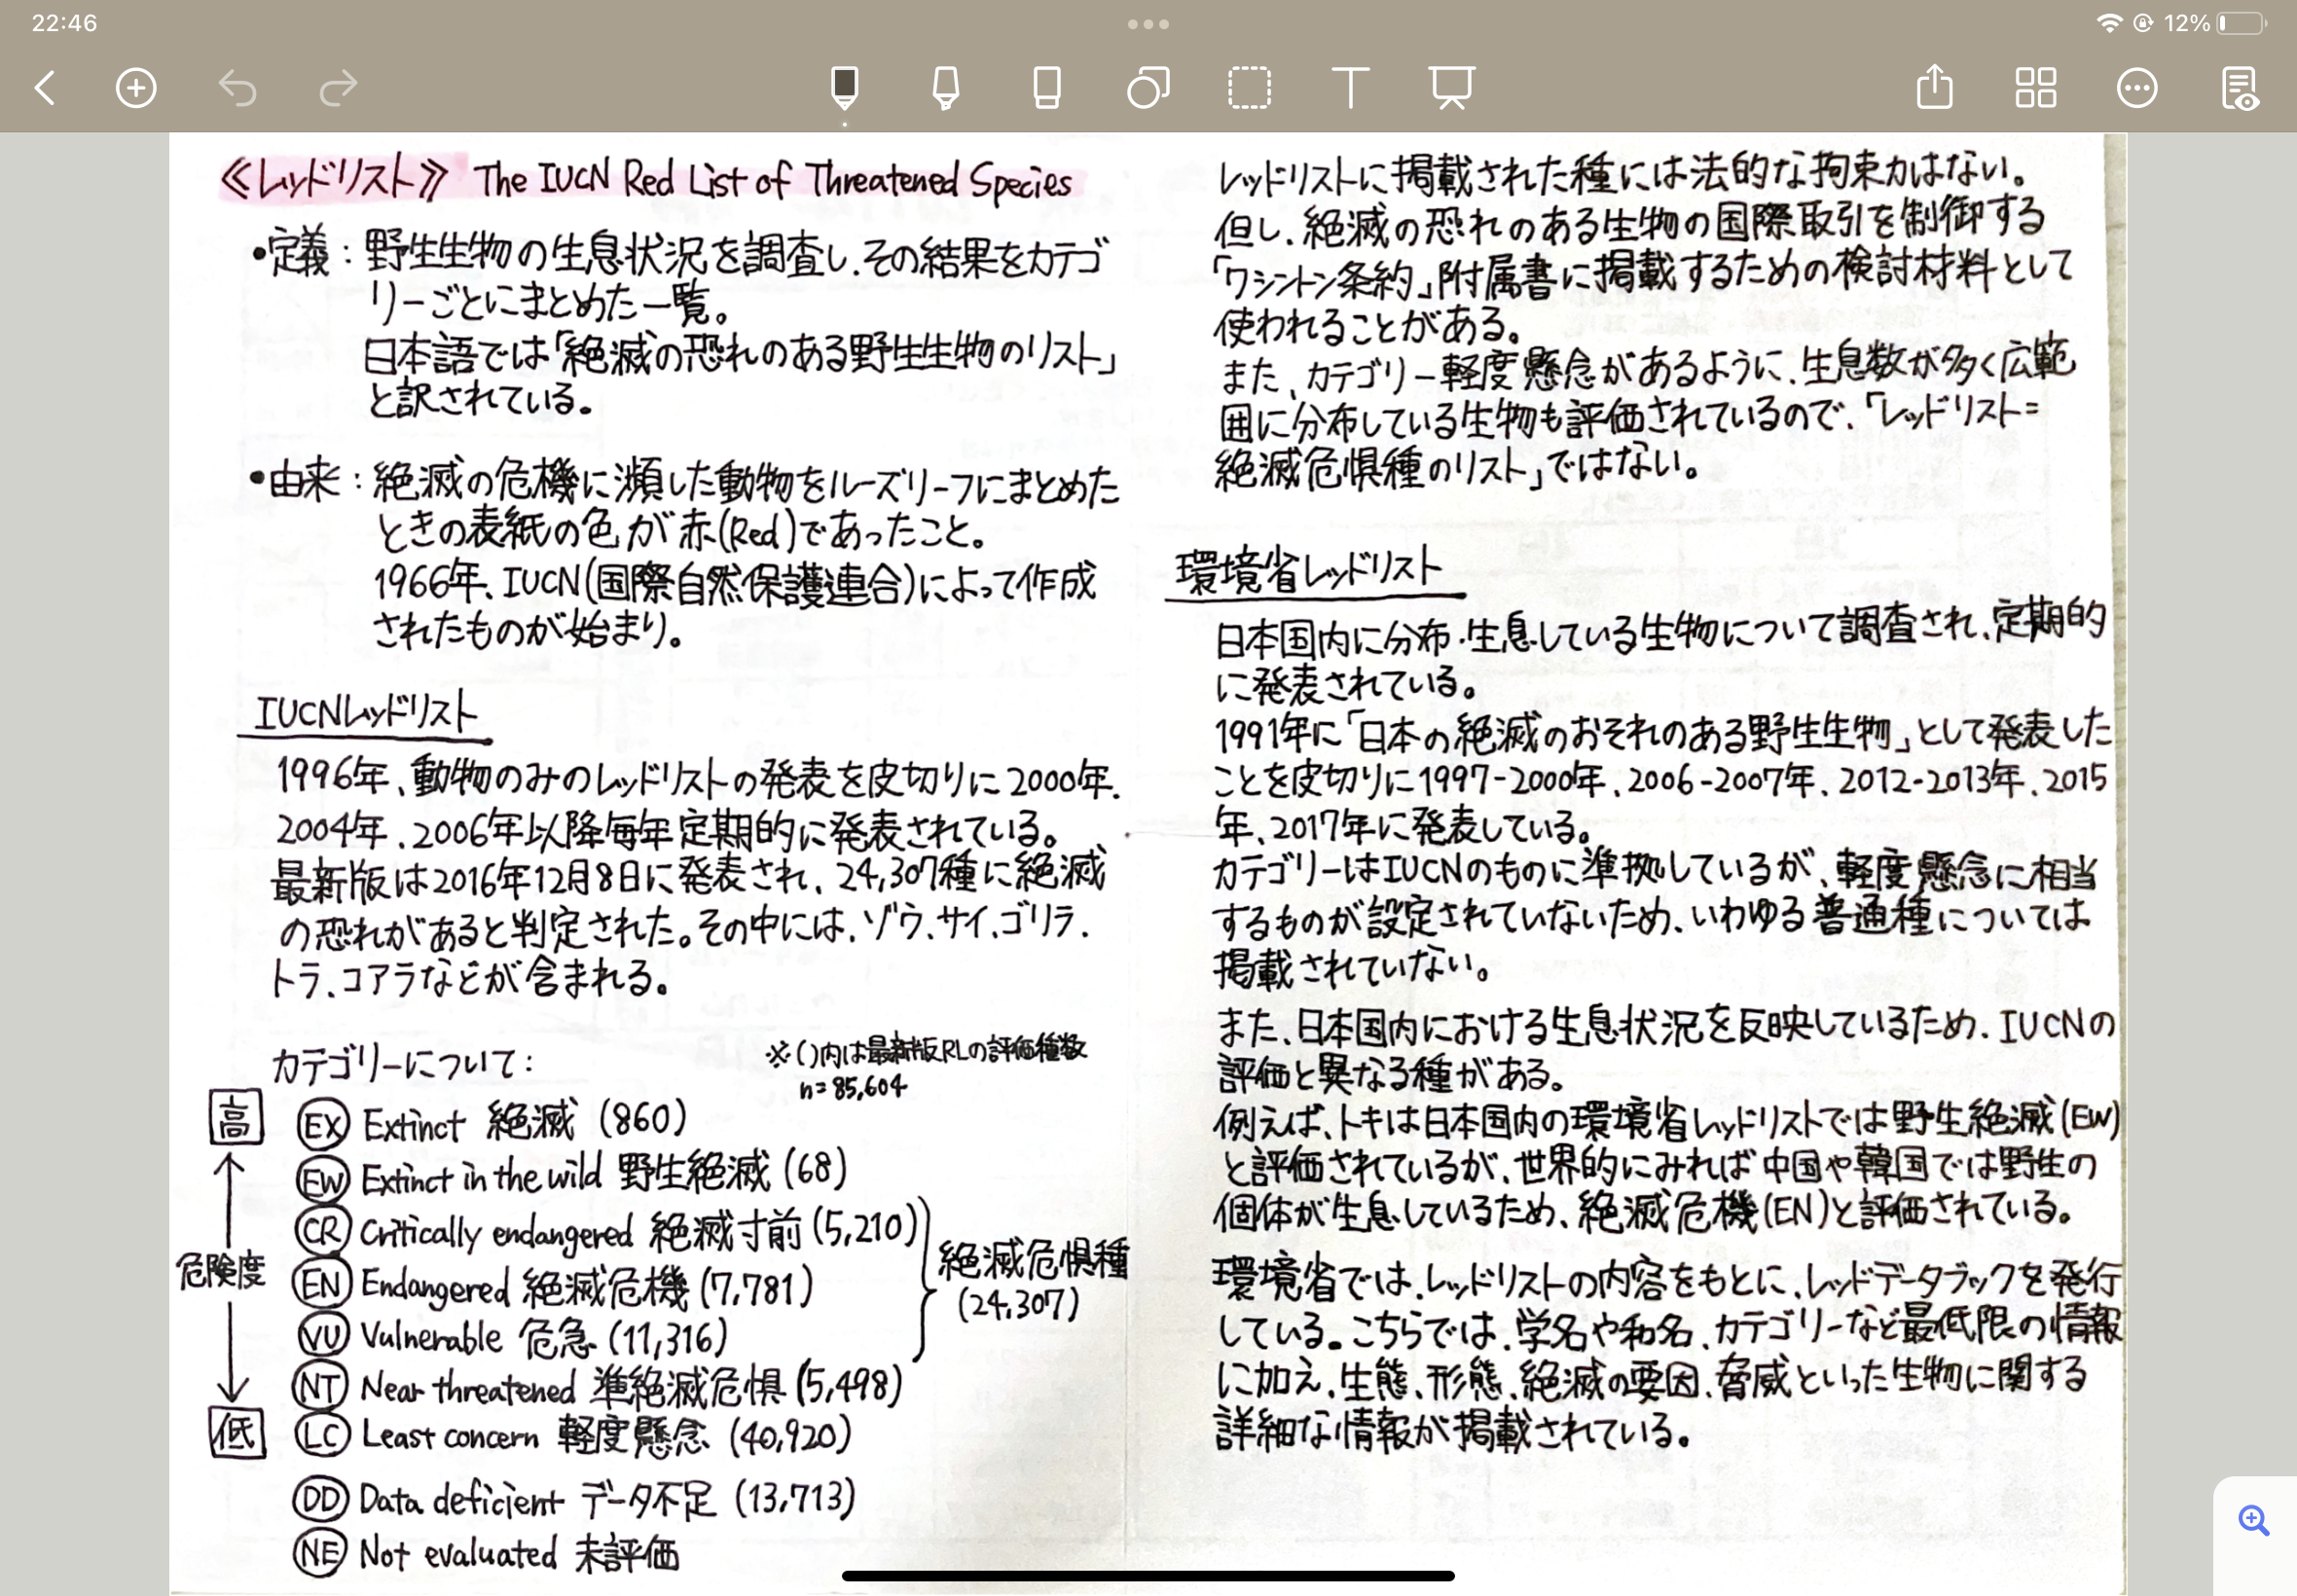 22:46
12%
≪レッドリスト≫ The IUCN Red List of Threatened Species
•定義：野生生物の生息状況を調査し、その結果をカテゴ
リーごとにまとめた一覧。
日本語では「絶滅の恐れのある野生生物のリスト」
と訳されている。
•由来：絶滅の危機に瀕した動物をルーズリーフにまとめた
ときの表紙の色が赤(Red)であったこと。
1966年、IUCN(国際自然保護連合)によって作成
されたものが始まり。
IUCNレッドリスト
1996年、動物のみのレッドリストの発表を皮切りに2000年、
2004年、2006年以降毎年定期的に発表されている。
最新版は2016年12月8日に発表され、24,307種に絶滅
の恐れがあると判定された。その中には、ゾウ、サイ、ゴリラ、
トラ、コアラなどが含まれる。
カテゴリーについて：
※( )内は最新版RLの評価種数
n=85,604
高
危険度
低
EX Extinct 絶滅 (860)
EW Extinct in the wild 野生絶滅 (68)
CR Critically endangered 絶滅寸前 (5,210)
EN Endangered 絶滅危機 (7,781)
VU Vulnerable 危急 (11,316)
絶滅危惧種
(24,307)
NT Near threatened 準絶滅危惧 (5,498)
LC Least concern 軽度懸念 (40,920)
DD Data deficient データ不足 (13,713)
NE Not evaluated 未評価
レッドリストに掲載された種には法的な拘束力はない。
但し、絶滅の恐れのある生物の国際取引を制御する
「ワシントン条約」附属書に掲載するための検討材料として
使われることがある。
また、カテゴリー軽度懸念があるように、生息数が多く広範
囲に分布している生物も評価されているので、「レッドリスト=
絶滅危惧種のリスト」ではない。
環境省レッドリスト
日本国内に分布・生息している生物について調査され、定期的
に発表されている。
1991年に「日本の絶滅のおそれのある野生生物」として発表した
ことを皮切りに1997-2000年、2006-2007年、2012-2013年、2015
年、2017年に発表している。
カテゴリーはIUCNのものに準拠しているが、軽度懸念に相当
するものが設定されていないため、いわゆる普通種については
掲載されていない。
また、日本国内における生息状況を反映しているため、IUCNの
評価と異なる種がある。
例えば、トキは日本国内の環境省レッドリストでは野生絶滅(EW)
と評価されているが、世界的にみれば中国や韓国では野生の
個体が生息しているため、絶滅危機(EN)と評価されている。
環境省では、レッドリストの内容をもとに、レッドデータラックを発行
している。こちらでは、学名や和名、カテゴリーなど最低限の情報
に加え、生態、形態、絶滅の要因、脅威といった生物に関する
詳細な情報が掲載されている。